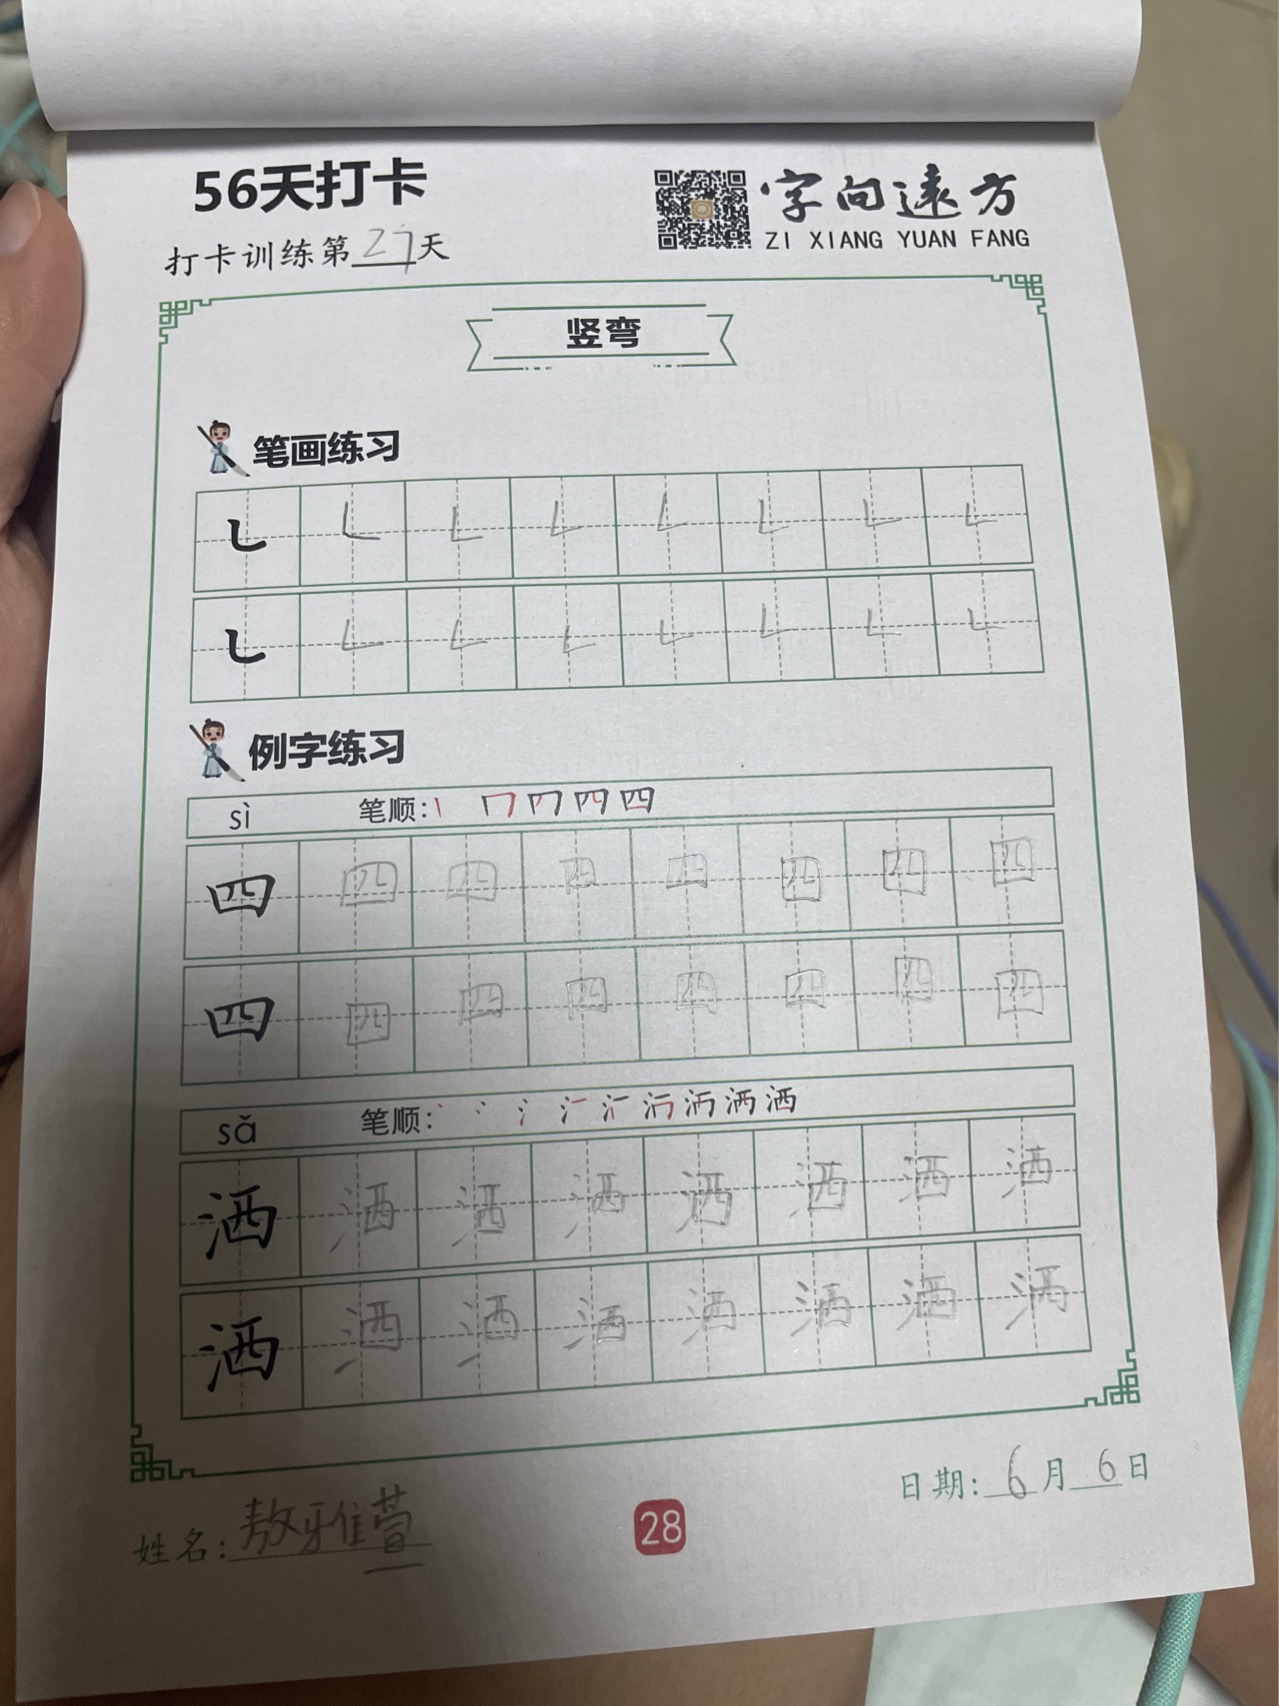 56天打卡
字向远方
ZI XIANG YUAN FANG
打卡训练第27天
竖弯
笔画练习
㇄ ㇄ ㇄ ㇄ ㇄ ㇄ ㇄ ㇄
㇄ ㇄ ㇄ ㇄ ㇄ ㇄ ㇄ ㇄
例字练习
sì 笔顺:
四 四 四 四 四 四 四 四
四 四 四 四 四 四 四 四
sǎ 笔顺:
洒 洒 洒 洒 洒 洒 洒 洒
洒 洒 洒 洒 洒 洒 洒 洒
日期:6月6日
姓名:敖雅萱
28